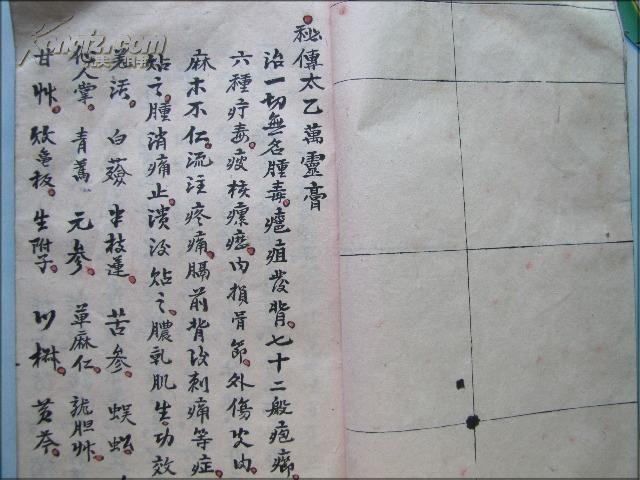 秘傳太乙萬靈膏
治一切無名腫毒瘡疽發背七十二般瘡癤
六種疔毒痰核瘰癧內損骨節外傷皮肉
麻木不仁流注疼痛膈前背後刺痛等症
貼之腫消痛止潰後貼之膿乾肌生功效
羌活 白蘞 半枝蓮 苦參 蜈蚣
仙人掌 青蒿 元參 草麻仁 龍胆艸
甘艸 敗龜板 生附子 川椒 黃芩